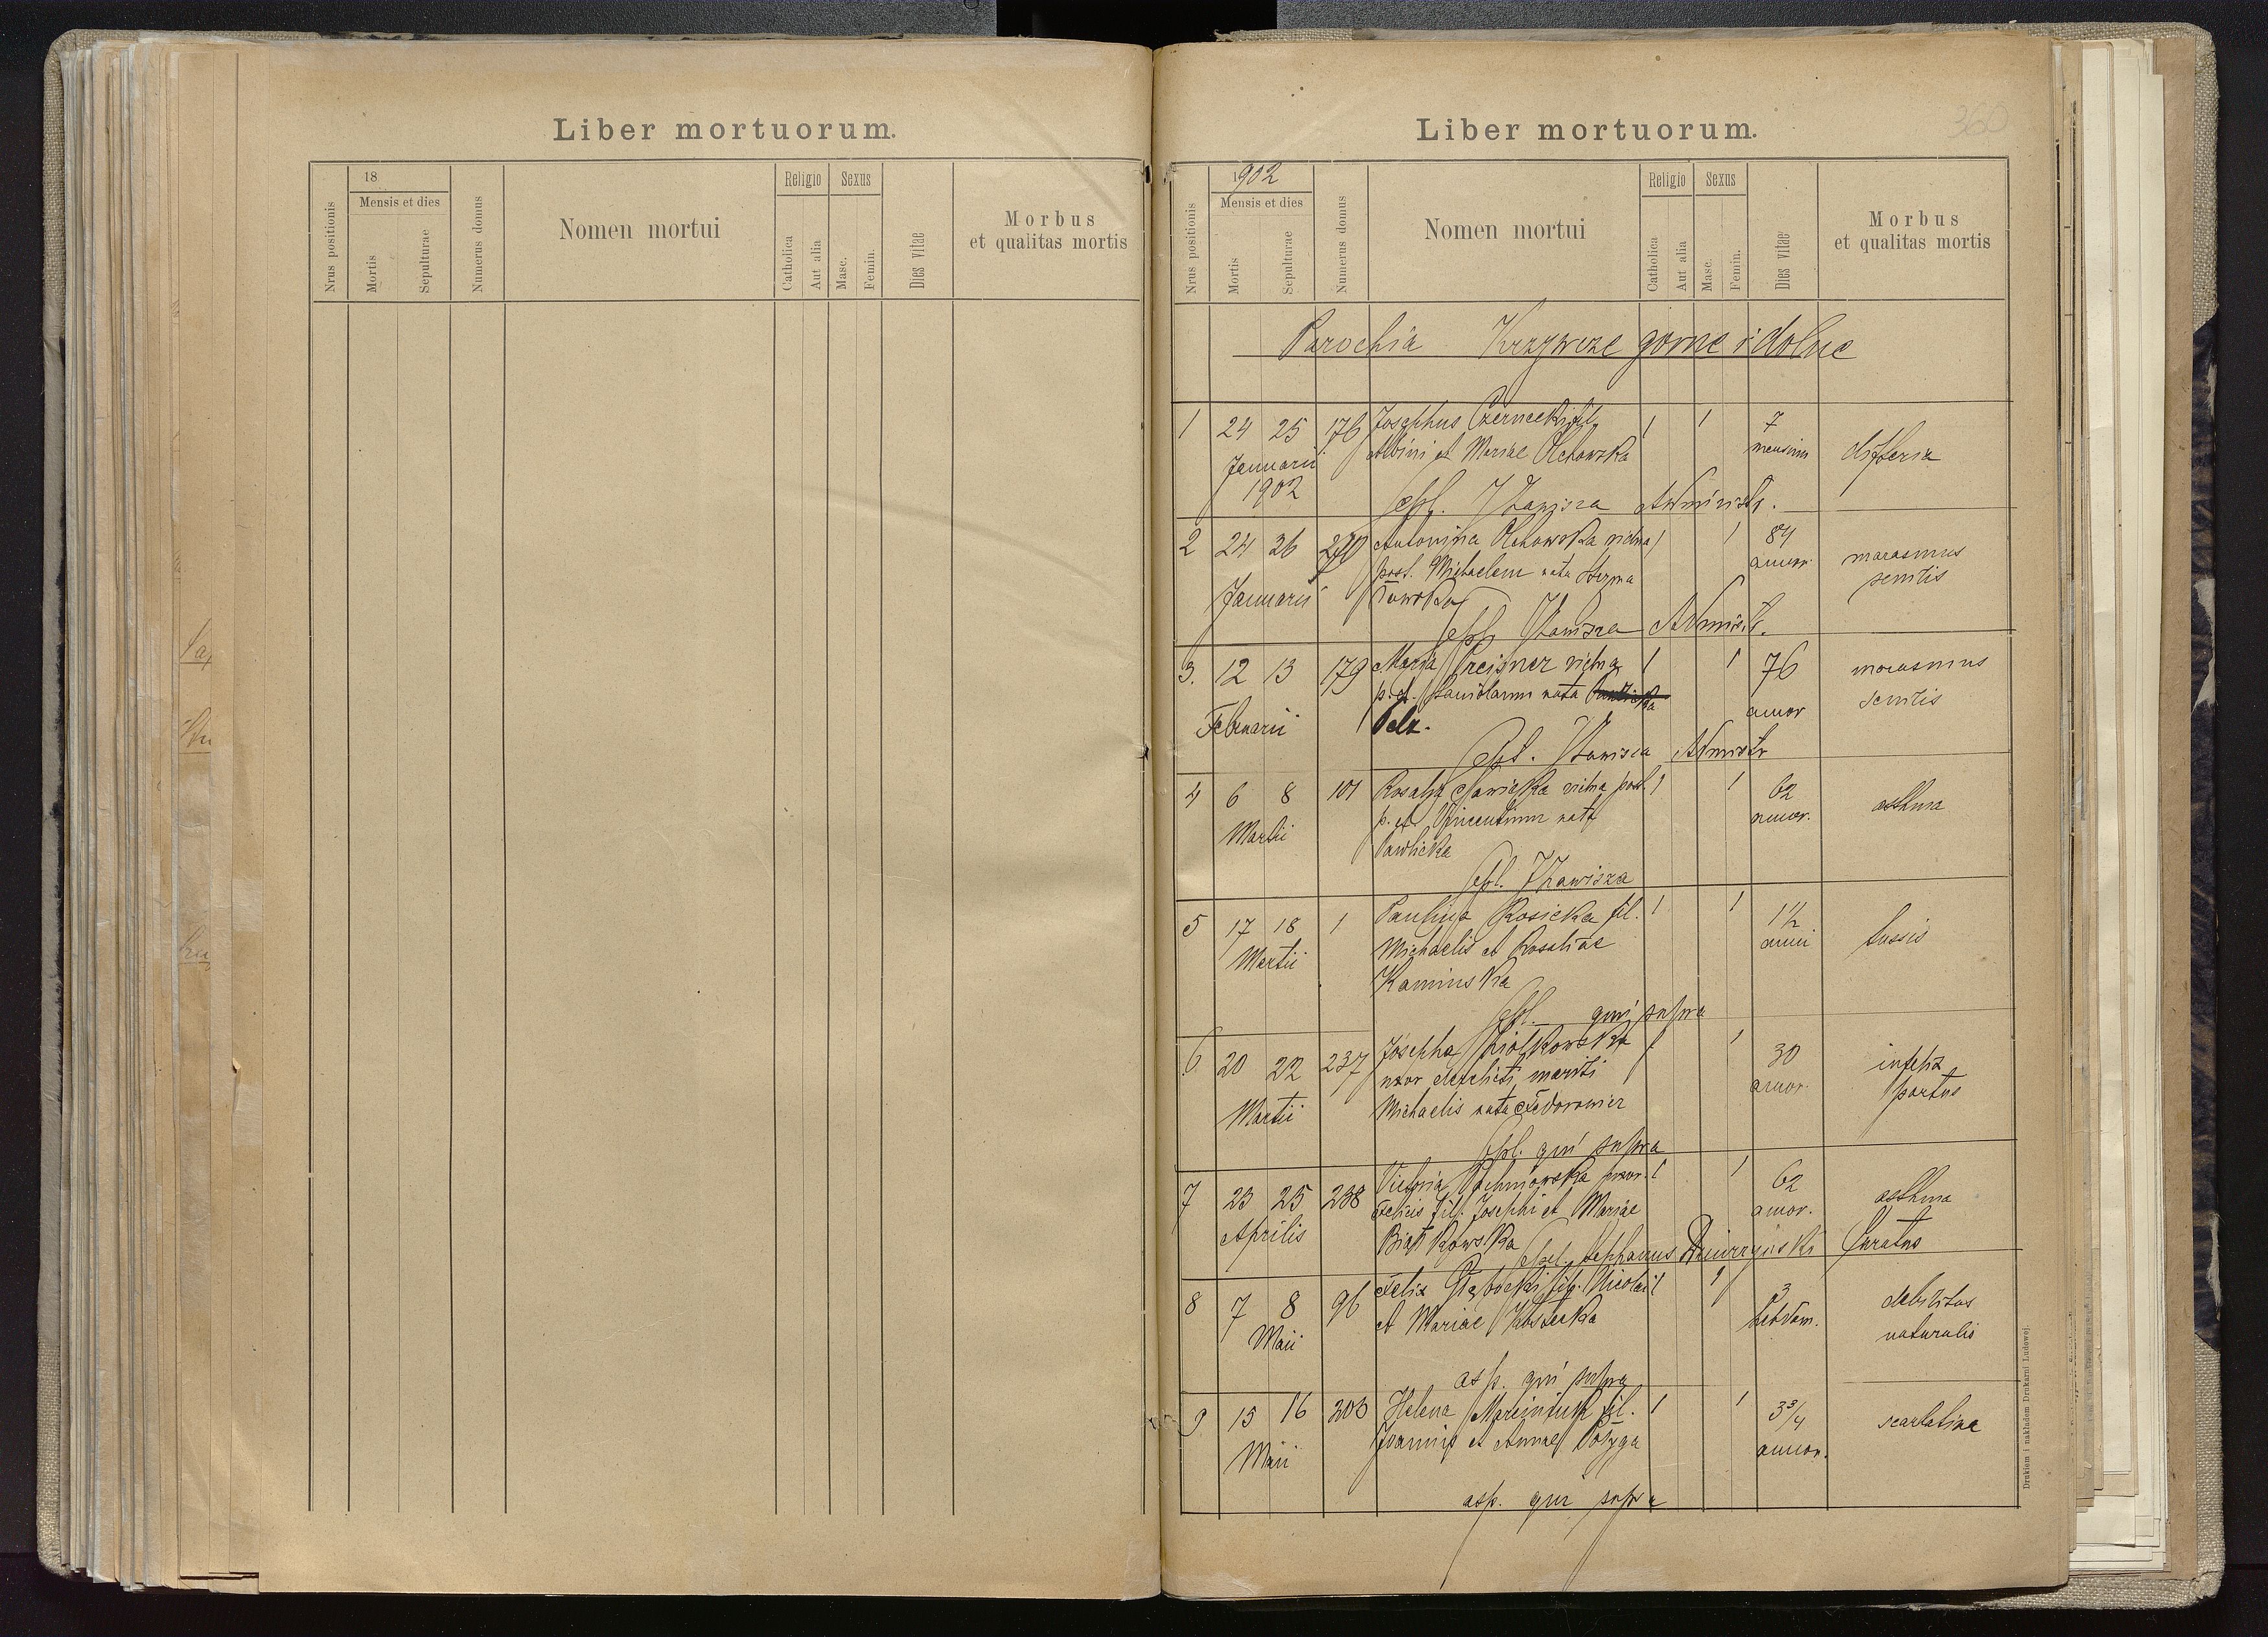 Liber mortuorum.
Nrus positionis
18
Mensis et dies
Mortis
Sepulturae
Numerus domus
Nomen mortui
Religio
Catholica
Aut alia
Sexus
Masc.
Femin.
Dies vitae
Morbus
et qualitas mortis
360
Liber mortuorum.
Nrus positionis
1902
Mensis et dies
Mortis
Sepulturae
Numerus domus
Nomen mortui
Religio
Catholica
Aut alia
Sexus
Masc.
Femin.
Dies vitae
Morbus
et qualitas mortis
Parochia Krzywcze gorne i dolne
1 24 25 176 Josephus Czernecki fil. 1 1 7
Januarii Albini et Mariae Olchowska mensium difteria
1902
sepl. JZawisza Administr.
2 24 26 270 Antonina Olchowska vidua 1 1 84
post. Michaelem nata annor. marasmus
Januarii senilis
sepl JZawisza Admistr.
3. 12 13 179 Maria Preisner vidua 1 1 76 marasmus
p. ef. Stanislaum nata senilis
Februarii Pelz. annor
Sepl. JZawisza Admistr
4 6 8 101 Rosalia Sawicka vidua post. 1 1 62
p. ef. Vincentium nata annor. asthma
Martii Pawlicka
sepl. JZawisza
5 17 18 1 Paulina Kosicka fil. 1 1 1½
Martii Michaelis et Rosaliae anni tussis
Kaminska
sepl. qui supra
6 20 22 237 Josepha Ziolkowska 1 1 30 infelix
uxor derelicti mariti annor. partus
Martii Michaelis nata Fedorowicz
sepl. qui supra
7 23 25 238 Victoria uxor. 1 1 62
Aprilis Felicis fil. Josephi et Mariae annor. asthma
Bialkowska sepel. Stephanus Curatus
8 7 8 96 Felix Głębocki fil. Nicolai 1 1 3 debilitas
Maii et Mariae hebdom. naturalis
asp. qui supra
9 15 16 306 Helena fil. 1 1 3¾ scarlatina
Maii Joannis et Annae annor.
asp. qui supra
Drukiem i nakładem Drukarni Ludowej.